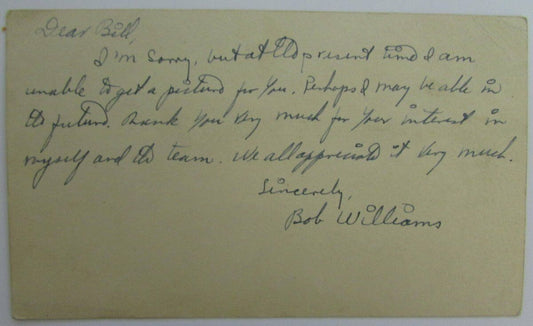 Dear Bill,
I'm Sorry, but at the present time I am
unable to get a picture for you. Perhaps I may be able in
the future. Thank you very much for your interest in
myself and the team. We all appreciate it very much.
Sincerely,
Bob Williams